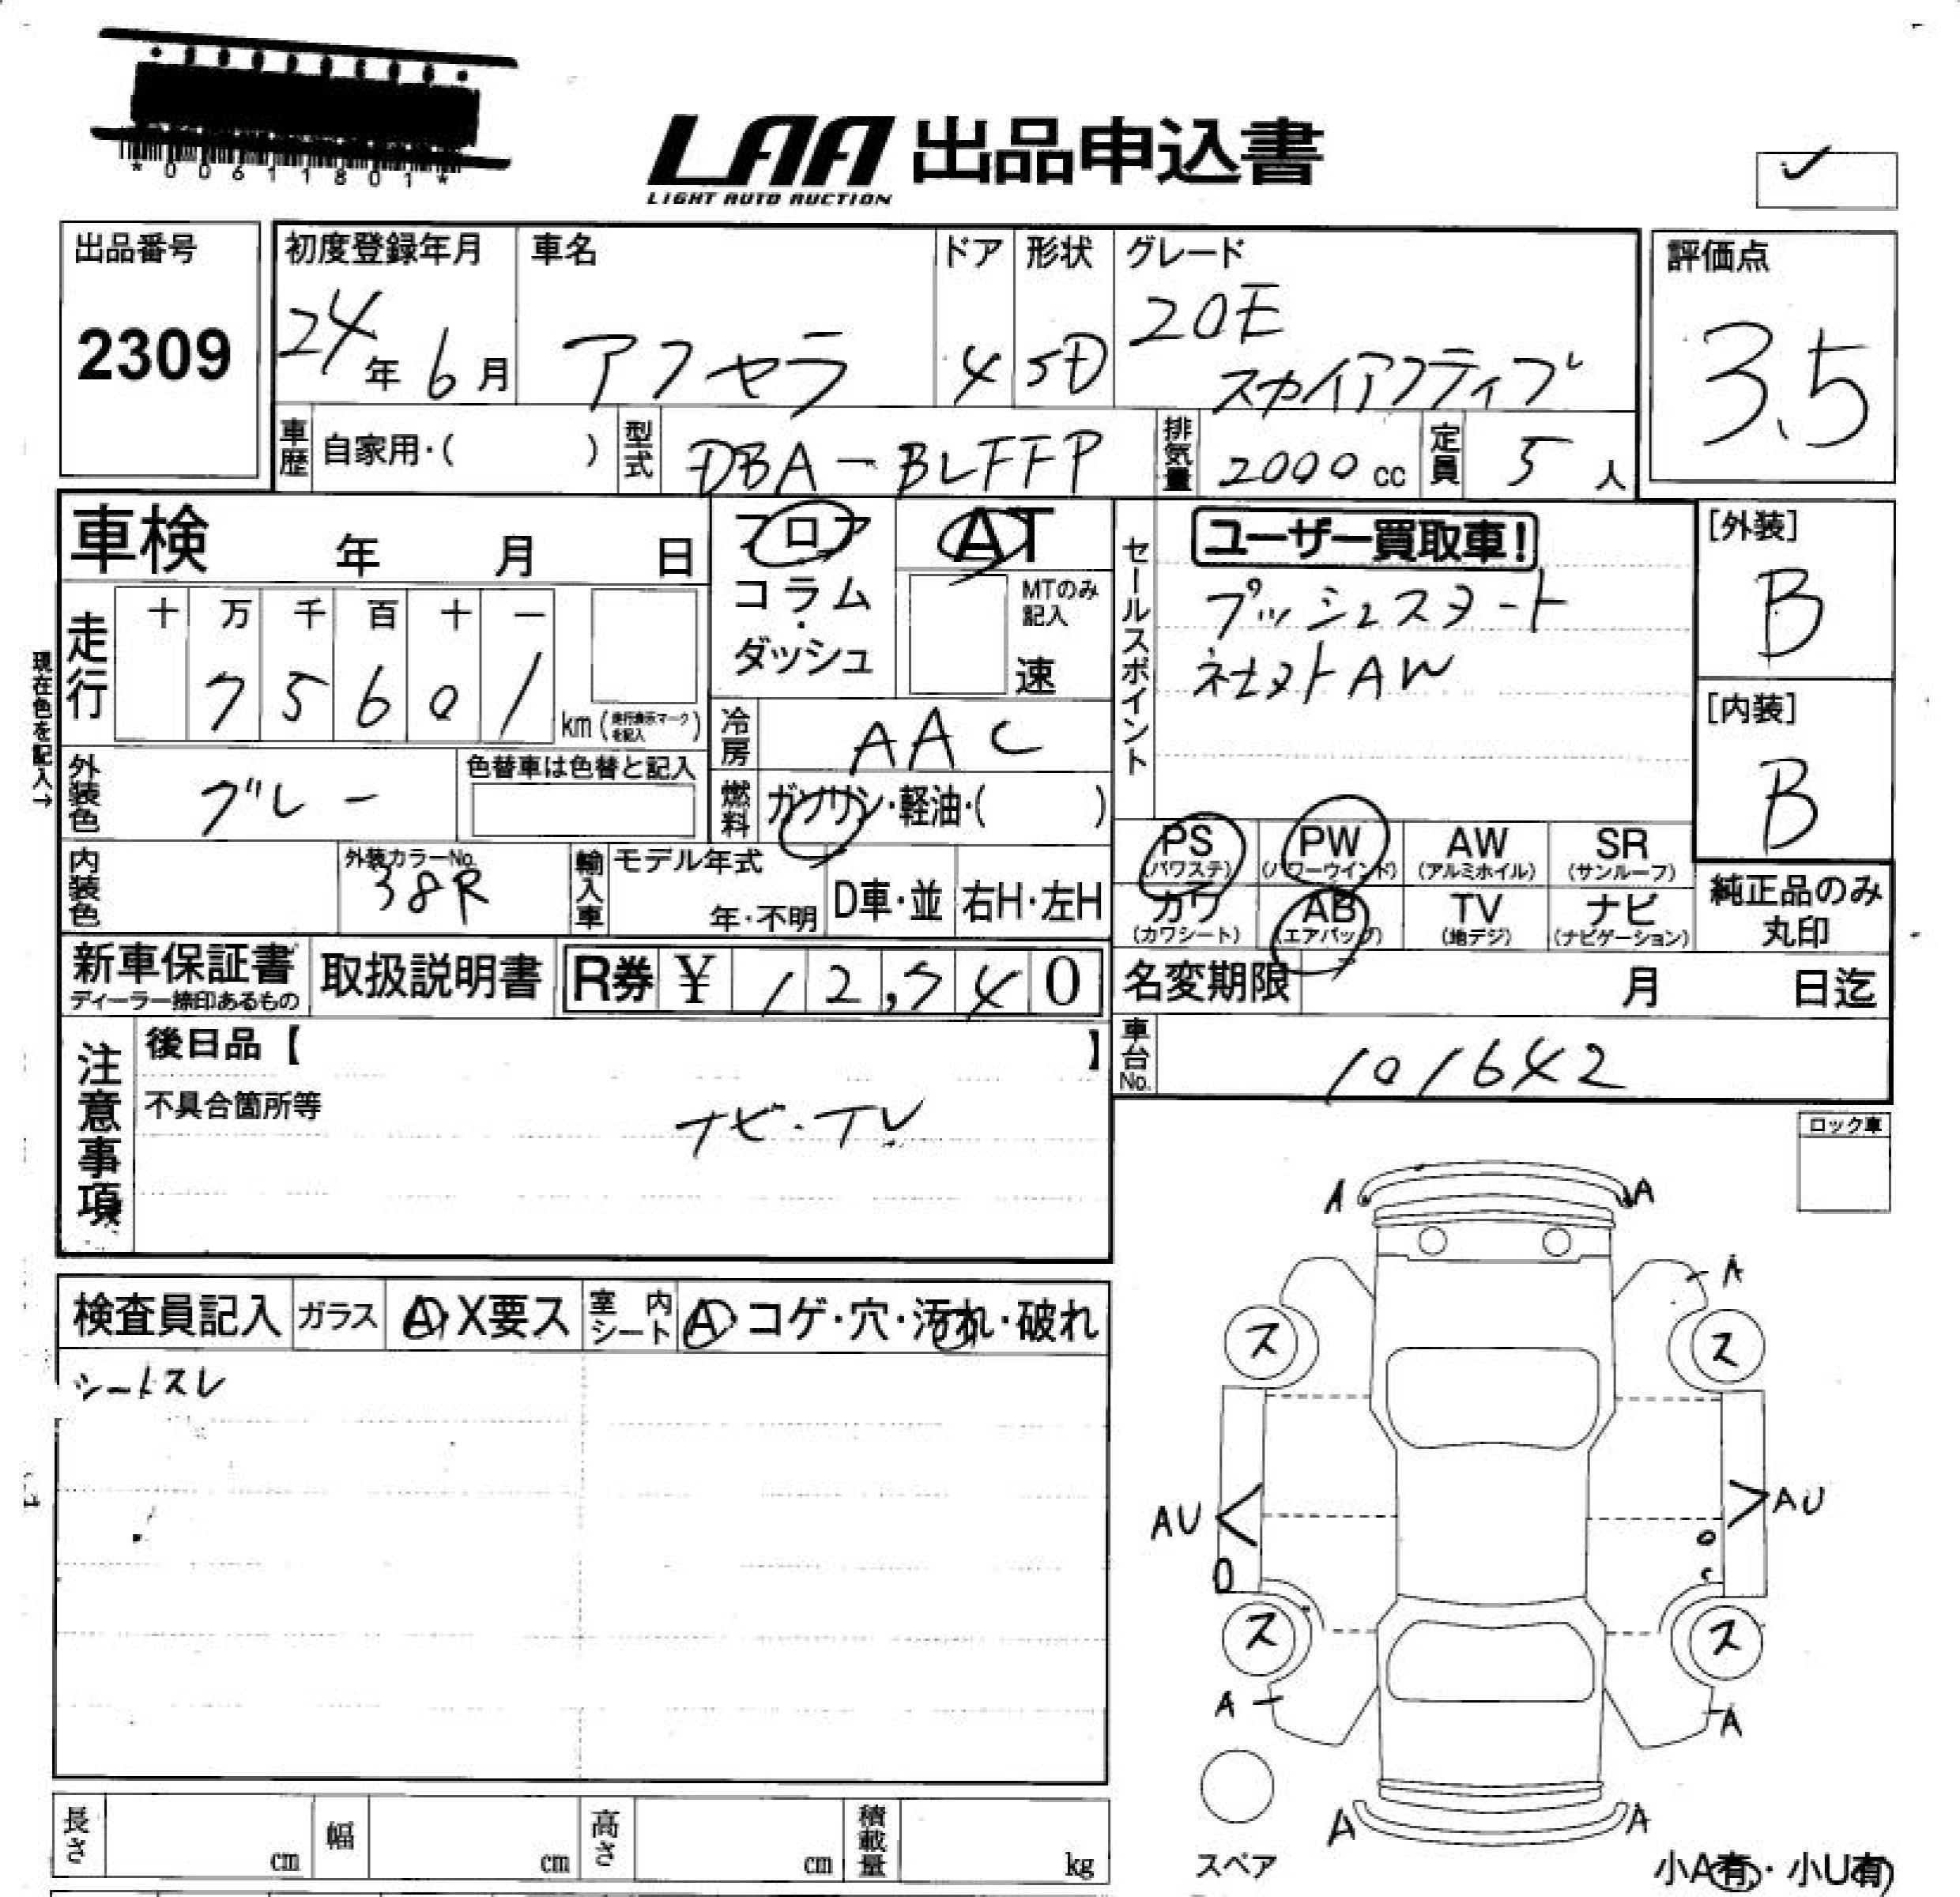 *00611801*
LAA 出品申込書
LIGHT AUTO AUCTION
✓
出品番号
2309
初度登録年月
24年6月
車名
アクセラ
ドア
4
形状
SD
グレード
20E
スカイアクティブ
評価点
3.5
車歴
自家用・( )
型式
DBA-BLFFP
排気量
2000cc
定員
5人
車検 年 月 日
フロア
コラム
・
ダッシュ
AT
MTのみ
記入
速
現在色を記入→
走行
十 万 千 百 十 一
7 5 6 0 1
km(走行表示マークを記入)
冷房
AAC
外装色
グレー
色替車は色替と記入
燃料
ガソリン・軽油・( )
内装色
外装カラーNo.
38R
輸入車
モデル年式
年・不明
D車・並
右H・左H
セールスポイント
ユーザー買取車!
プッシュスタート
社外AW
[外装]
B
[内装]
B
PS
(パワステ)
PW
(パワーウインド)
AW
(アルミホイル)
SR
(サンルーフ)
カワ
(カワシート)
AB
(エアバッグ)
TV
(地デジ)
ナビ
(ナビゲーション)
純正品のみ
丸印
新車保証書
ディーラー捺印あるもの
取扱説明書
R券 ¥ 12,540
名変期限 月 日迄
車台No.
101642
注意事項
後日品【 】
不具合箇所等
ナビ・TV
ロック車
検査員記入
ガラス
A・X要ス
室内シート
A・コゲ・穴・汚れ・破れ
シートスレ
A A
A
ス ス
AU AU
ス ス
A A
A A
スペア
小A有・小U有
長さ cm
幅 cm
高さ cm
積載量 kg